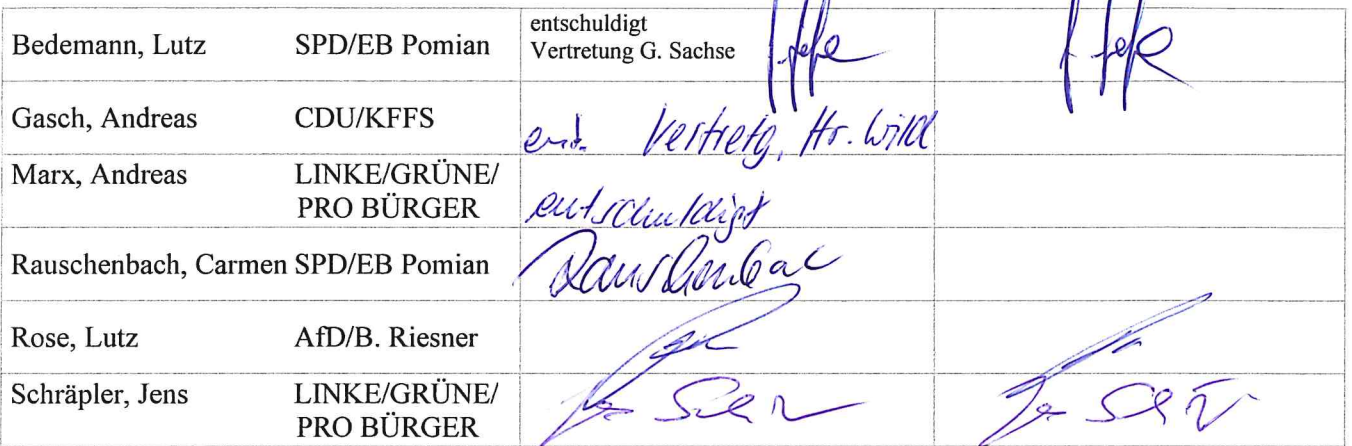 entschuldigt
Bedemann, Lutz SPD/EB Pomian Vertretung G. Sachse
Gasch, Andreas CDU/KFFS ent. Vertretg. Hr. Wild
Marx, Andreas LINKE/GRÜNE/
PRO BÜRGER entschuldigt
Rauschenbach, Carmen SPD/EB Pomian Rauschenbac
Rose, Lutz AfD/B. Riesner
Schräpler, Jens LINKE/GRÜNE/
PRO BÜRGER